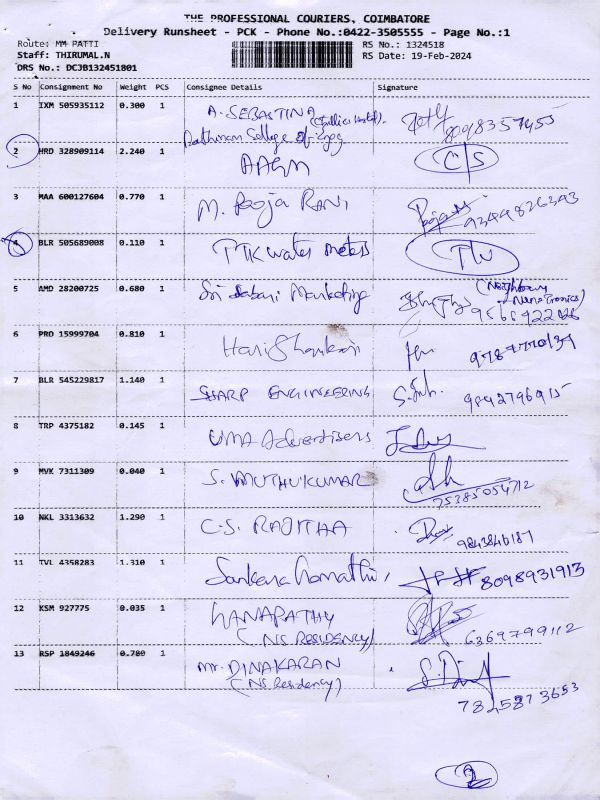 THE PROFESSIONAL COURIERS, COIMBATORE
Delivery Runsheet - PCK - Phone No.:0422-3505555 - Page No.:1
Route: MM PATTI
RS No.: 1324518
Staff: THIRUMAL.N
RS Date: 19-Feb-2024
DRS No.: DCJB132451801
S No Consignment No Weight PCS Consignee Details Signature
1 IXM 505935112 0.300 1 A. SEBASTINA
8098357455
2 HRD 328909114 2.240 1 AAGM CS
3 MAA 600127604 0.770 1 M. Pooja RANI
9344826393
4 BLR 505689008 0.110 1 PTK water meters
5 AMD 28200725 0.680 1 Sri Sabari Marketing
6 PRO 15999704 0.810 1 Hari Shankar
7 BLR 545229817 1.140 1 SHARP ENGINEERING
9842796915
8 TRP 4375182 0.145 1 UMA Advertisers
9 MVK 7311309 0.040 1 S. MUTHUKUMAR
10 NKL 3313632 1.290 1 C.S. RAJITHA
11 TVL 4358283 1.310 1 Sankara Gomathi,
8098931913
12 KSM 927775 0.035 1 GANAPATHY
(NS RESIDENCY)
6369799112
13 RSP 1849246 0.780 1 Mr. DINAKARAN
(NS Residency)
7825873653